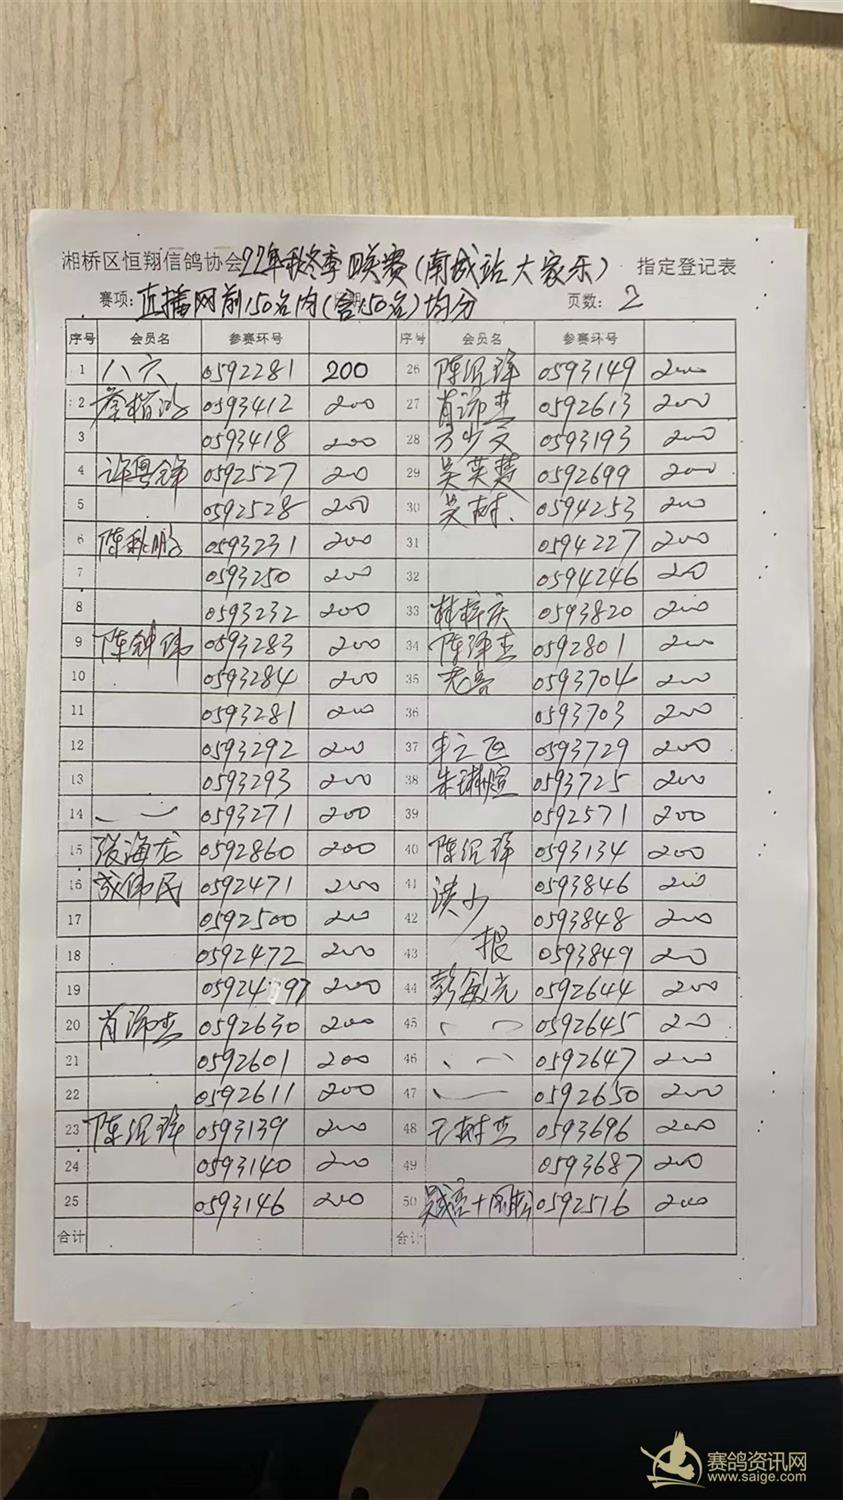 湘桥区恒翔信鸽协会22年秋冬季联赛(南城站大家乐) 指定登记表
赛项:直播网前150名内(含150名)均分 页数: 2
序号 会员名 参赛环号 序号 会员名 参赛环号
1 八六 0592281 200 26 陈 0593149 200
2 蔡楷 0593412 200 27 肖沛杰 0592613 200
3 0593418 200 28 方少文 0593193 200
4 许粤锋 0592527 200 29 吴英慧 0592699 200
5 0592528 200 30 吴树 0594253 200
6 陈秋鹏 0593231 200 31 0594227 200
7 0593250 200 32 0594246 200
8 0593232 200 33 林梓庆 0593820 200
9 陈钟伟 0593283 200 34 陈泽杰 0592801 200
10 0593284 200 35 老亮 0593704 200
11 0593281 200 36 0593703 200
12 0593292 200 37 0593729 200
13 0593293 200 38 朱琳煊 0593725 200
14 0593271 200 39 0592571 200
15 张海龙 0592860 200 40 陈 0593134 200
16 成伟民 0592471 200 41 洪少 0593846 200
17 0592500 200 42 0593848 200
18 0592472 200 43 根 0593849 200
19 0592497 200 44 彭敏光 0592644 200
20 肖沛杰 0592630 200 45 0592645 200
21 0592601 200 46 0592647 200
22 0592611 200 47 0592650 200
23 陈 0593139 200 48 王树杰 0593696 200
24 0593140 200 49 0593687 200
25 0593146 200 50 0592516 200
合计 合计
赛鸽资讯网
www.saige.com